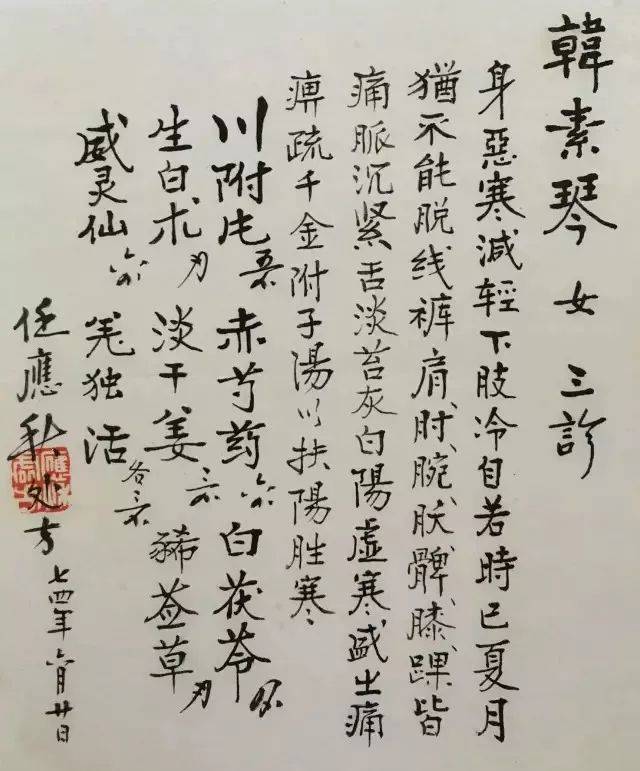 韓素琴 女 三診
身惡寒減輕下肢冷自若時已夏月
猶不能脱线裤肩、肘、腕、胅、髀、膝、踝皆
痛脈沉紧舌淡苔灰白陽虚寒盛之痛
痹疏千金附子湯以扶陽胜寒
川附片 赤芍药 白茯苓
生白术 淡干姜 豨莶草
威灵仙 羌独活 各
任應秋处方
七四年六月廿日